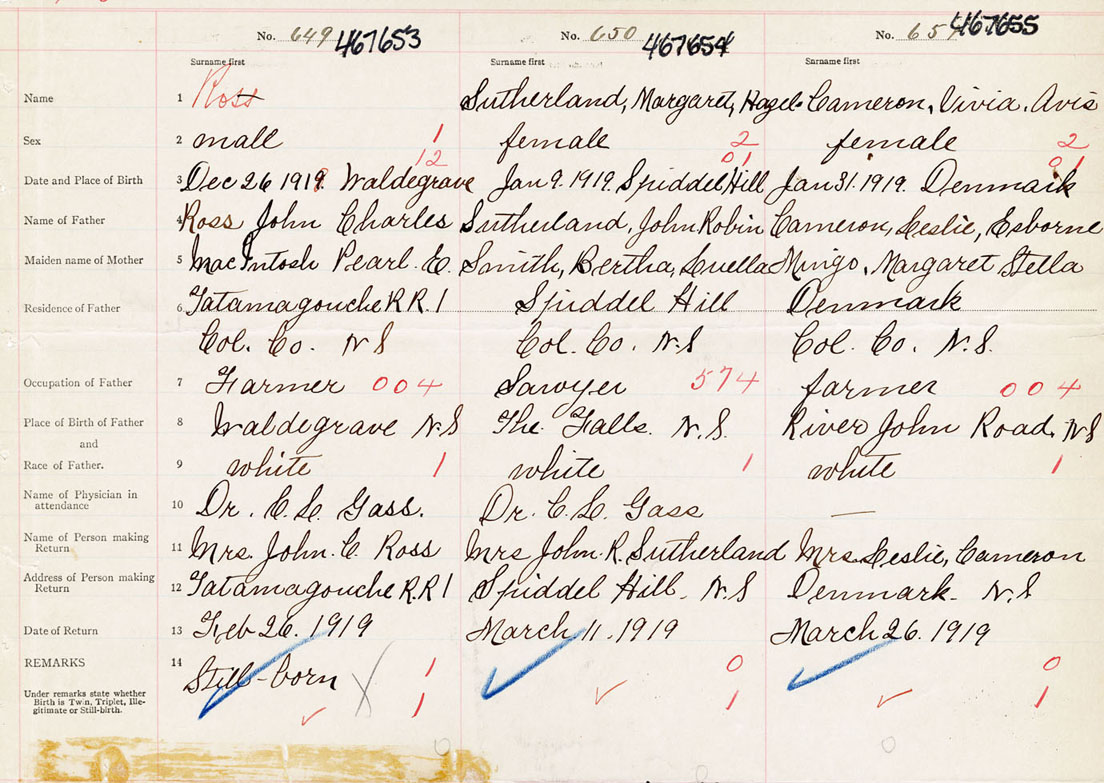 No. 649 467653 No. 650 467654 No. 651 467655
Surname first Surname first Surname first
Name 1 Ross Sutherland, Margaret, Hazel Cameron, Vivia. Avis
Sex 2 mall 1 female 2 female 2
12 01 01
Date and Place of Birth 3 Dec 26 1919. Waldegrave Jan 9. 1919. Spiddel Hill Jan 31. 1919. Denmark
Name of Father 4 Ross John Charles Sutherland, John Robin Cameron, Leslie, Esborne
Maiden name of Mother 5 MacIntosh Pearl. E. Smith, Bertha, Luella Mingo, Margaret Stella
Residence of Father 6 Tatamagouche R.R. 1 Spiddel Hill Denmark
Col. Co. N S Col. Co. N. S Col. Co. N. S.
Occupation of Father 7 Farmer 004 Sawyer 574 farmer 004
Place of Birth of Father 8 Waldegrave N. S The Falls. N. S. River John Road, N S
and
Race of Father. 9 white 1 white 1 white 1
Name of Physician in
attendance 10 Dr. E. L. Gass. Dr. E. L. Gass —
Name of Person making
Return 11 Mrs. John. C. Ross Mrs John. R. Sutherland Mrs. Leslie, Cameron
Address of Person making
Return 12 Tatamagouche R. R 1 Spiddel Hill. N. S Denmark. N. S
Date of Return 13 Feb 26. 1919 March 11. 1919 March 26. 1919
REMARKS 14 Still-born 1 0 0
Under remarks state whether
Birth is Twin, Triplet, Ille-
gitimate or Still-birth. 1 1 1